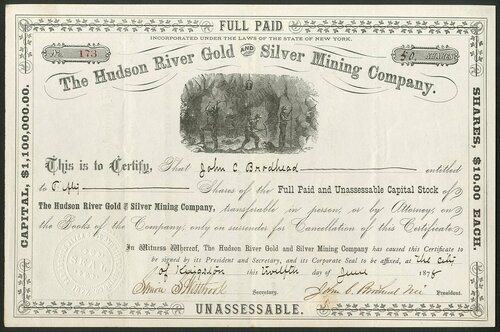 FULL PAID
INCORPORATED UNDER THE LAWS OF THE STATE OF NEW YORK.
No. 173
50 SHARES
The Hudson River Gold AND Silver Mining Company.
CAPITAL, $1,100,000.00.
SHARES, $10.00 EACH.
This is to Certify, That John C Brodhead entitled
to Fifty Shares of the Full Paid and Unassessable Capital Stock of
The Hudson River Gold and Silver Mining Company, transferable in person, or by Attorney, on
the Books of the Company, only on surrender for Cancellation of this Certificate
In Witness Whereof, The Hudson River Gold and Silver Mining Company has caused this Certificate to
be signed by its President and Secretary, and its Corporate Seal to be affixed, at the City
of Kingston this twelfth day of June 1878
Secretary. John C. Brodhead President.
UNASSESSABLE.